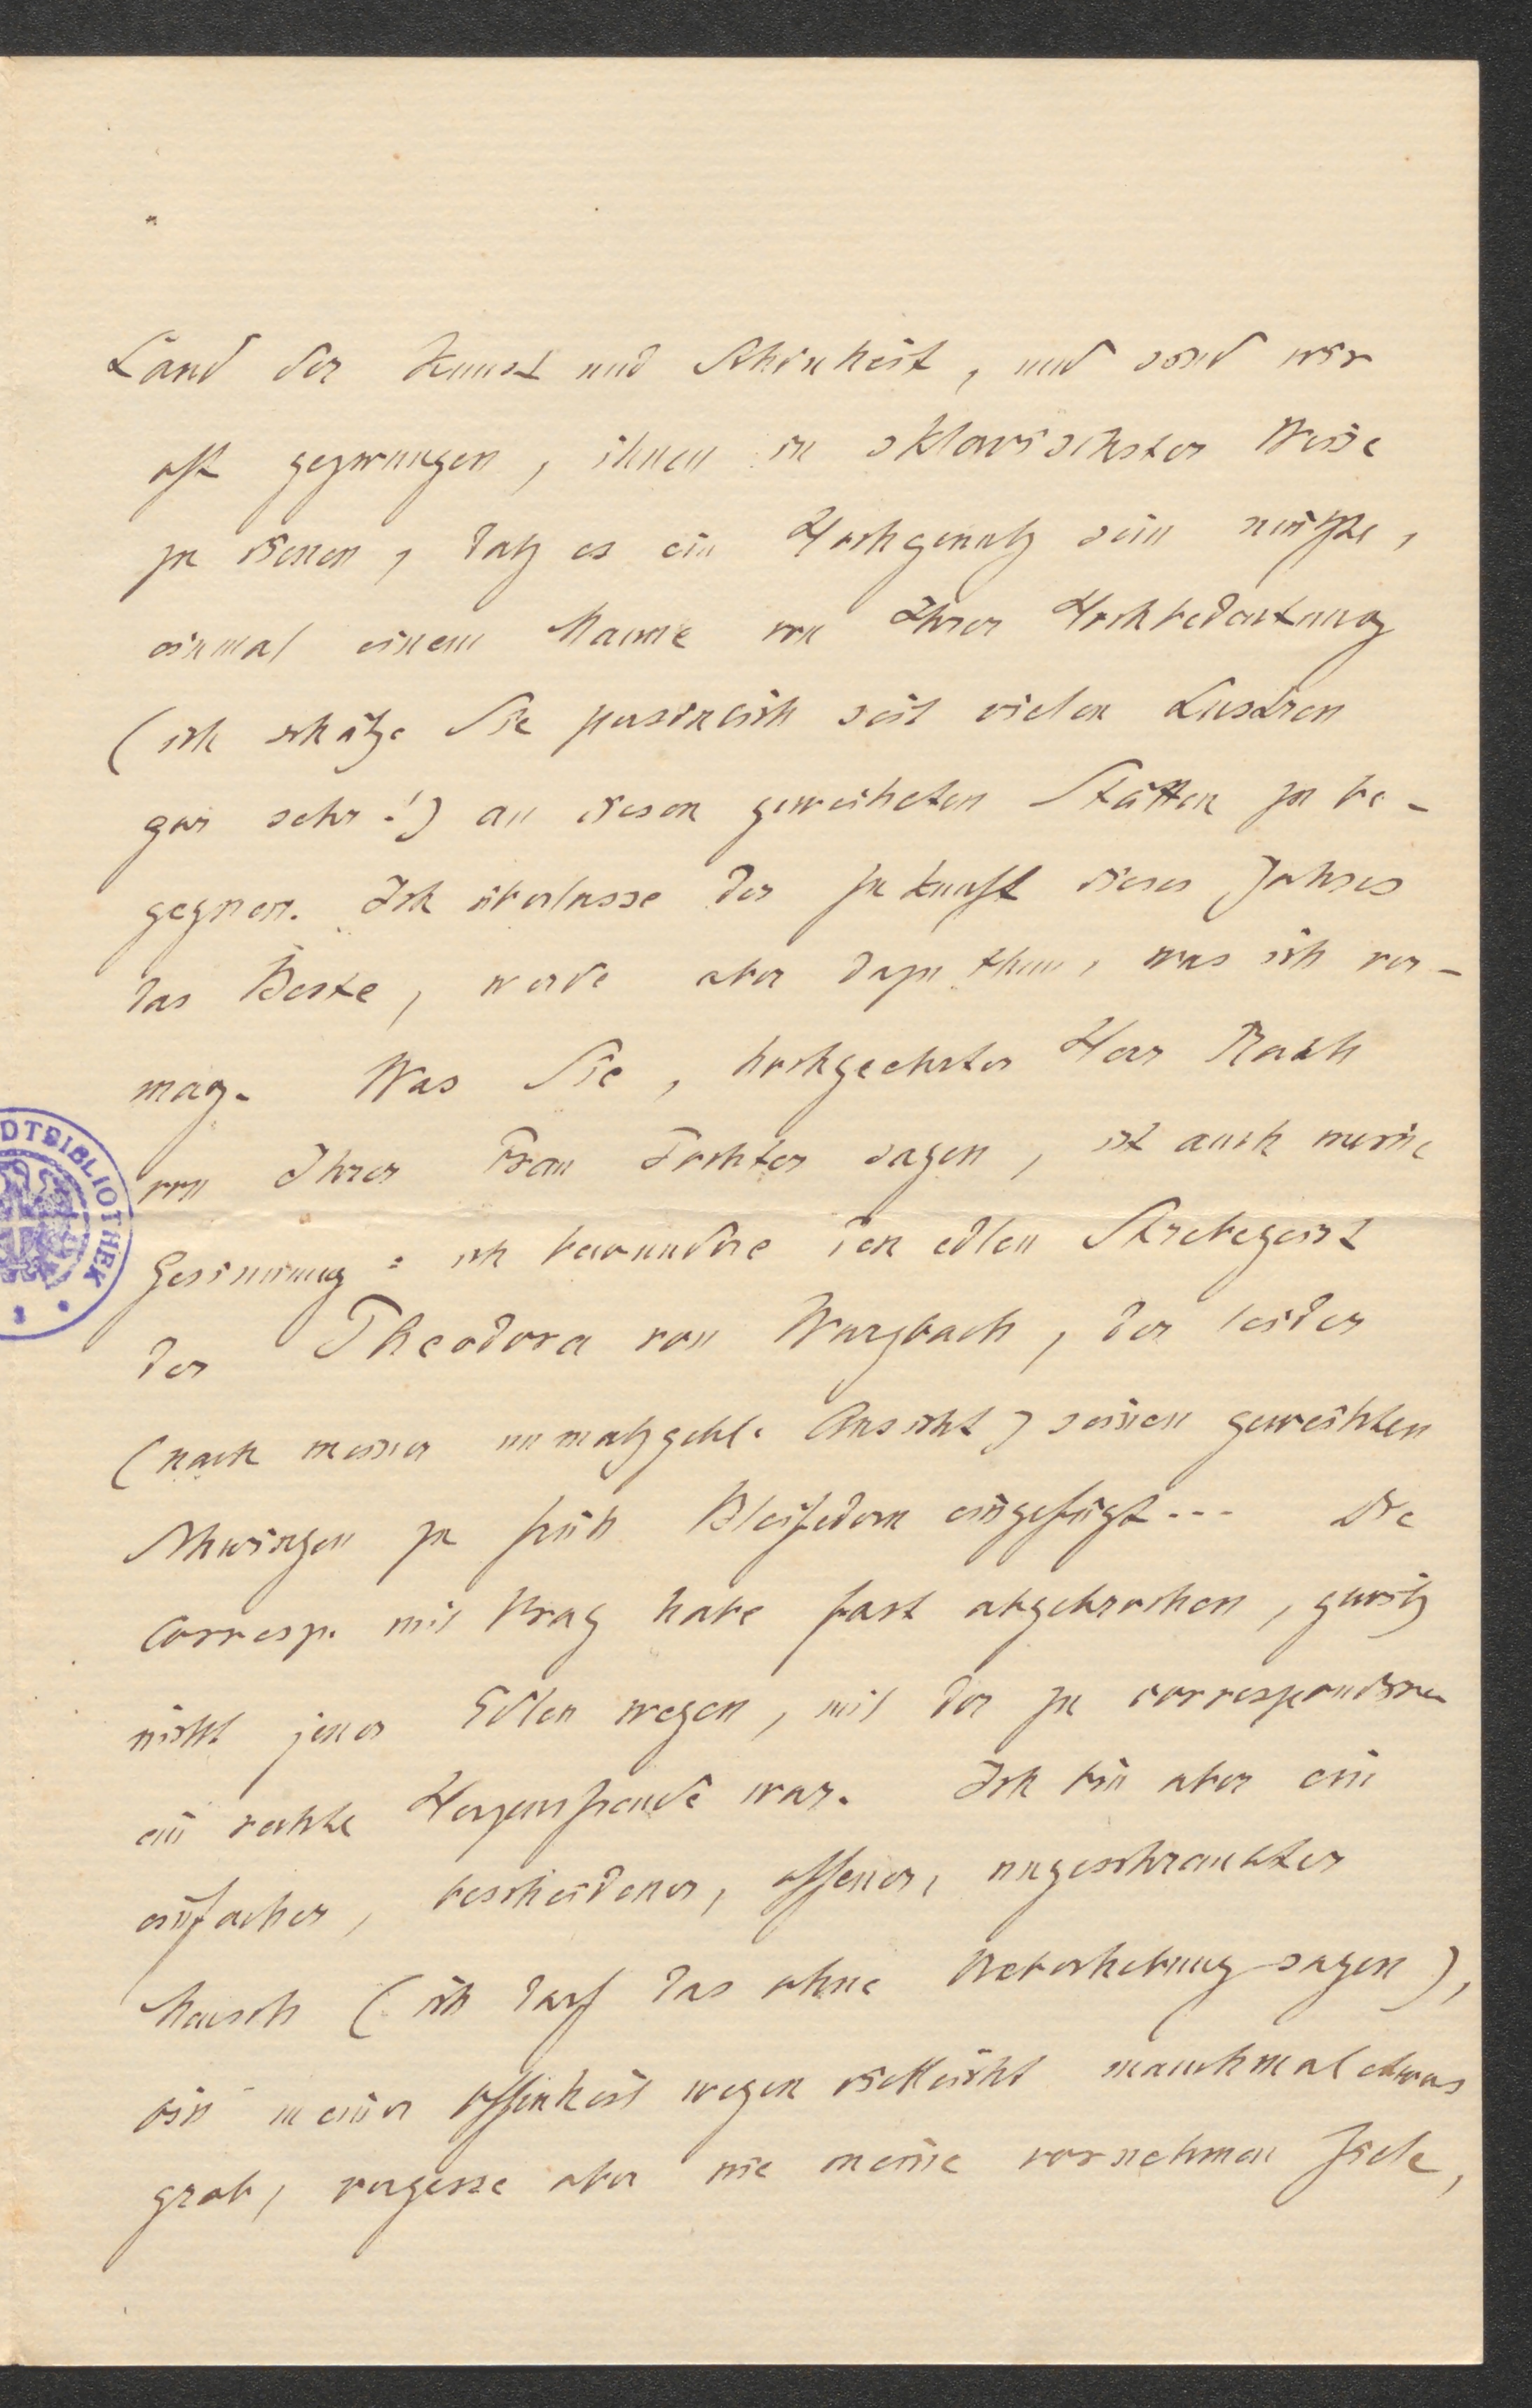 Land der Kunst und Schönheit, und sind wir
oft gezwungen, ihnen in sklavischster Weise
zu dienen, daß es ein Hochgenuß sein müßte,
einmal einem Manne von Ihrer Hochbedeutung
(ich schätze Sie persönlich seit vielen Lustren
gar sehr!) an diesen geweiheten Stätten zu be-
gegnen. Ich überlasse der Zukunft dieses Jahres
das Beste, werde aber dazu thun, was ich ver-
mag. Was Sie, hochgeehrter Herr Rath
von Ihrer Frau Tochter sagen, ist auch meine
Gesinnung: ich bewundere den edlen Strebegeist
der Theodora von Wurzbach, der leider
(nach meiner unmaßgebl. Ansicht) seinen geweihten
Schwingen zu früh Bleifedern eingefügt... Die
Corresp. mit Prag habe fast abgebrochen, gewiß
nicht jener Edlen wegen, mit der zu correspondiren
ein rechte Herzensfreude war. Ich bin aber ein
einfacher, bescheidener, offener, ungeschraubter
Mensch (ich darf das ohne Ueberhebung sagen),
bin meiner Offenheit wegen vielleicht manchmal etwas
grob, vergesse aber nie meine vornehmen Ziele,
DTBIBLIOTHEK